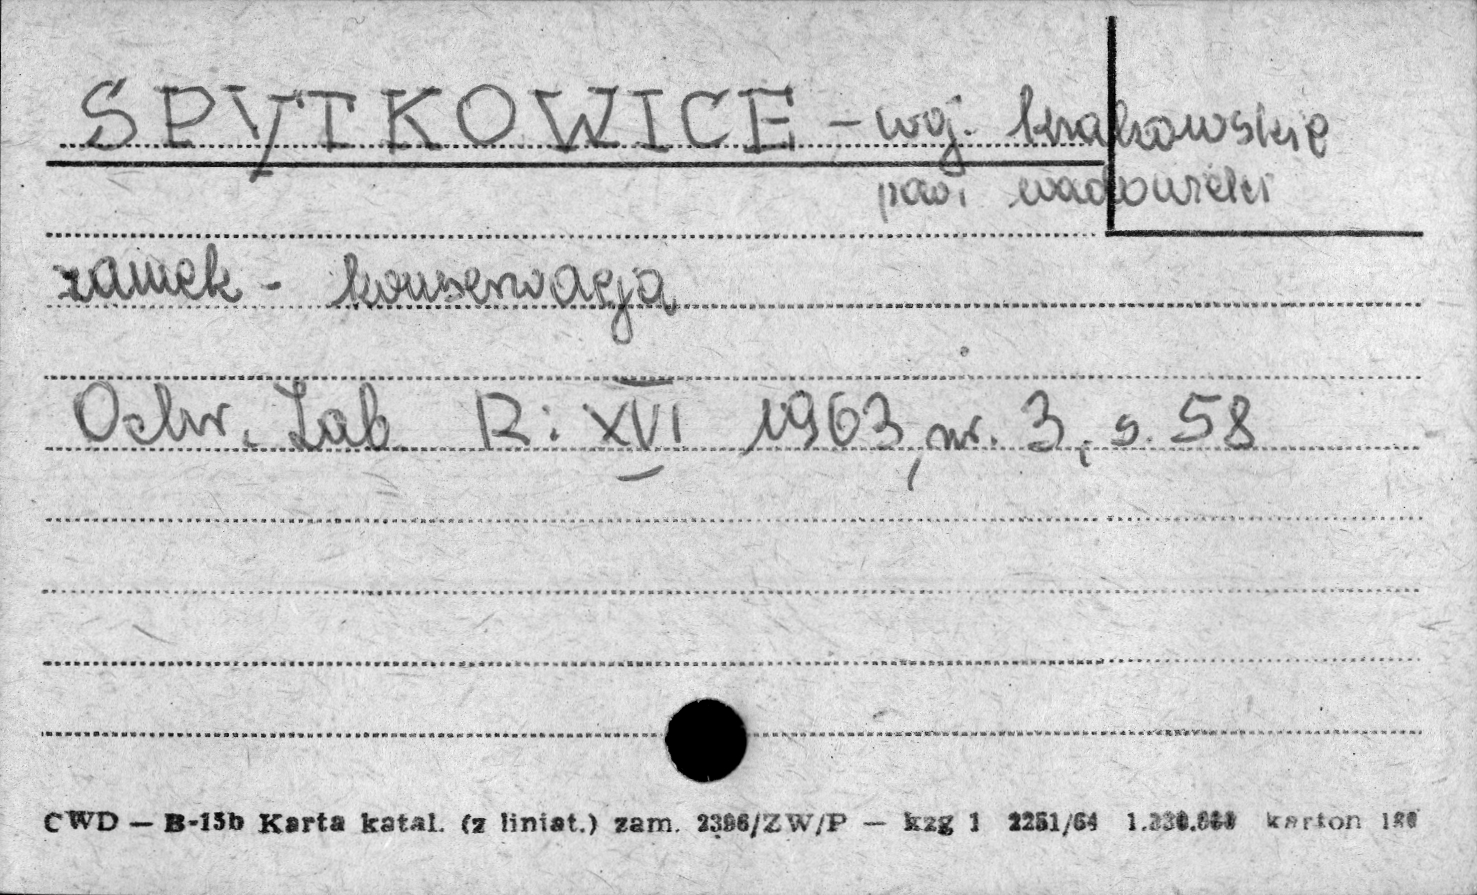 SPYTKOWICE - woj. krakowskie
pow. wadowicki
zamek - konserwacja
Ochr. Zab. R: XVI 1963, nr. 3, s. 58
CWD — B-15b Karta katal. (z liniat.) zam. 2396/ZW/P — kzg 1 2251/64 karton